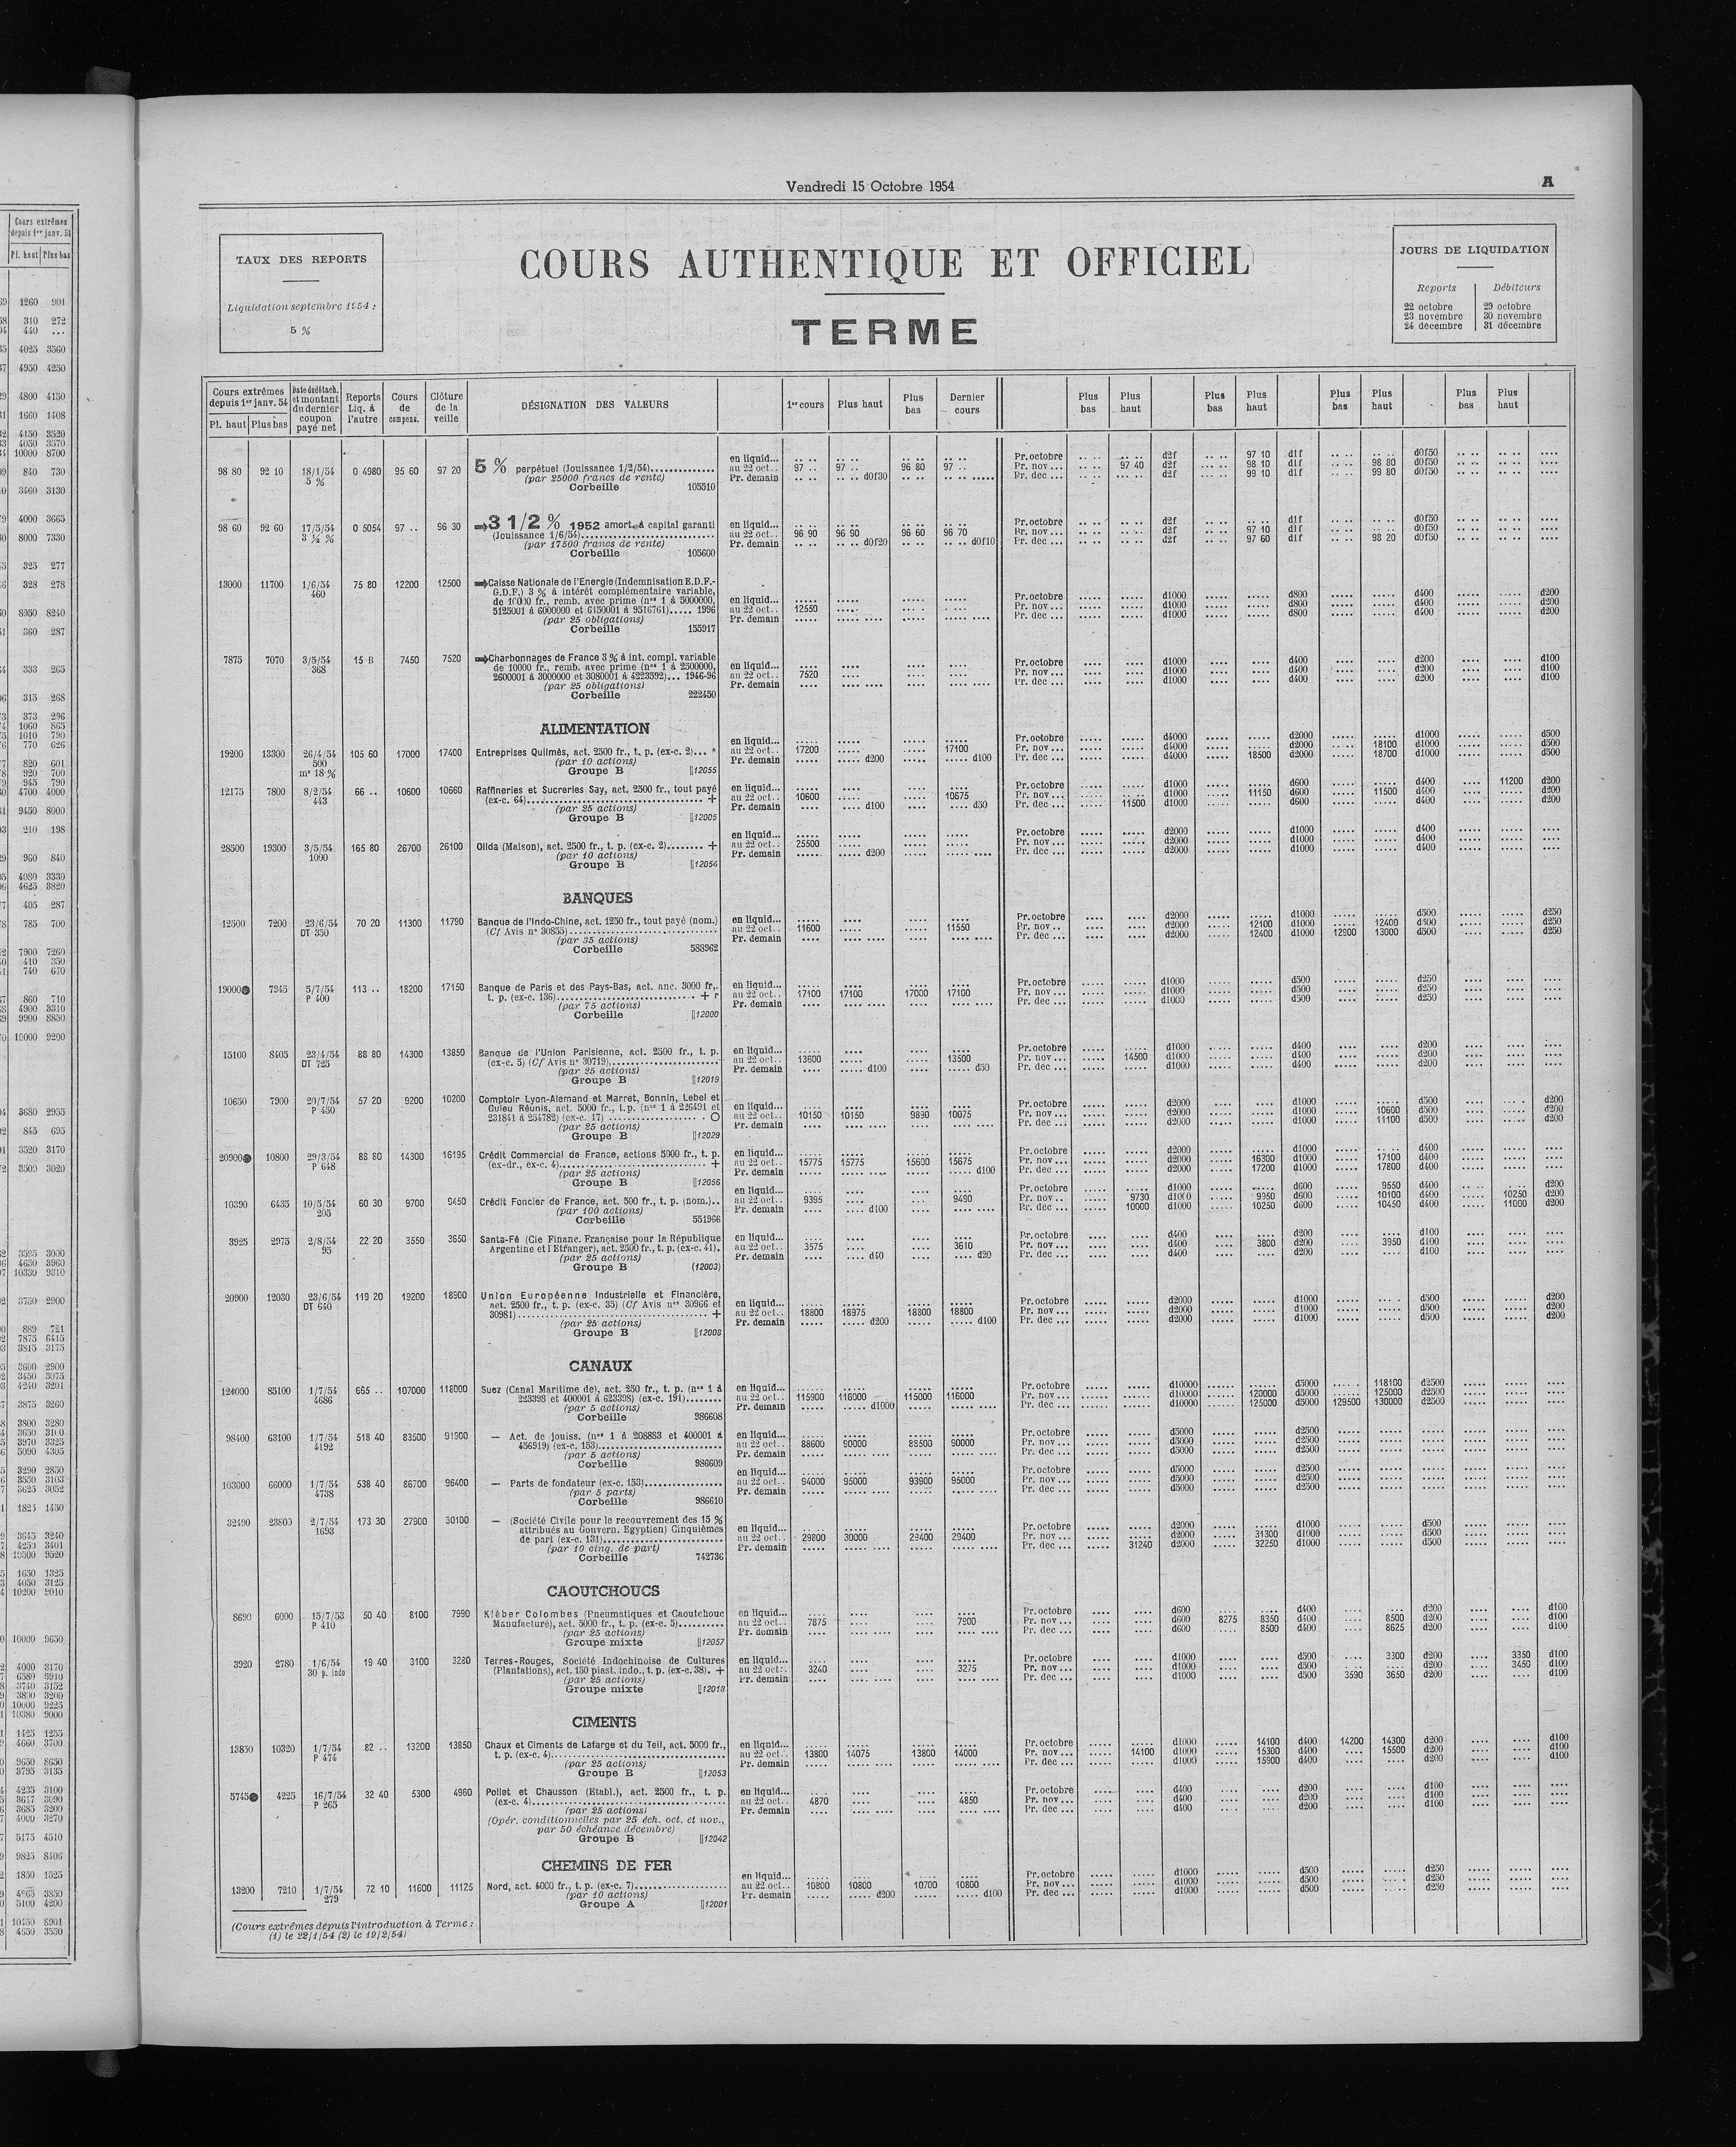 Vendredi 15 Octobre 1954
A
TAUX DES REPORTS
Liquidation septembre 1954 :
5 %
COURS AUTHENTIQUE ET OFFICIEL
TERME
JOURS DE LIQUIDATION
Reports Débiteurs
22 octobre 29 octobre
23 novembre 30 novembre
24 décembre 31 décembre
Cours extrêmes depuis 1er janv. 54 Pl. haut Plus bas
Date de détach. et montant du dernier coupon payé net
Reports Liq. à l'autre
Cours de compens.
Clôture de la veille
DÉSIGNATION DES VALEURS
1er cours Plus haut Plus bas Dernier cours
Plus bas Plus haut Plus bas Plus haut Plus bas Plus haut Plus bas Plus haut
98 80 92 10 18/1/54 0 4980 95 60 97 20 5 % perpétuel (Jouissance 1/2/54)
5 %
(par 25000 francs de rente)
Corbeille 105510
en liquid... Pr. octobre d2f 97 10 d1f d0f50
au 22 oct.. 97 .. 97 .. 96 80 97 .. Pr. nov ... 97 40 d2f 98 10 d1f 98 80 d0f50
Pr. demain d0f30 Pr. dec ... d2f 99 10 d1f 99 80 d0f50
98 60 92 60 17/5/54 0 5054 97 .. 96 30 3 1/2 % 1952 amort. à capital garanti
3 ½ % (Jouissance 1/6/54)
(par 17500 francs de rente)
Corbeille 105600
en liquid... Pr. octobre d2f d1f d0f50
au 22 oct.. 96 90 96 90 96 60 96 70 Pr. nov ... d2f 97 10 d1f d0f50
Pr. demain d0f20 d0f10 Pr. dec ... d2f 97 60 d1f 98 20 d0f50
13000 11700 1/6/54 75 80 12200 12500 Caisse Nationale de l'Energie (Indemnisation E.D.F.-
460 G.D.F.) 3 % à intérêt complémentaire variable,
de 10000 fr., remb. avec prime (nos 1 à 5000000,
5125001 à 6000000 et 6150001 à 9516761).... 1996
(par 25 obligations)
Corbeille 155917
en liquid... Pr. octobre d1000 d800 d400 d200
au 22 oct.. 12550 Pr. nov ... d1000 d800 d400 d200
Pr. demain Pr. dec ... d1000 d800 d400 d200
7875 7070 3/5/54 15 B 7450 7520 Charbonnages de France 3 % à int. compl. variable
368 de 10000 fr., remb. avec prime (nos 1 à 2500000,
2600001 à 3000000 et 3080001 à 4223592)... 1946-96
(par 25 obligations)
Corbeille 222450
en liquid... Pr. octobre d1000 d400 d200 d100
au 22 oct.. 7520 Pr. nov ... d1000 d400 d200 d100
Pr. demain Pr. dec ... d1000 d400 d200 d100
ALIMENTATION
19200 13300 26/4/54 105 60 17000 17400 Entreprises Quilmès, act. 2500 fr., t. p. (ex-c. 2)... *
500 (par 10 actions)
ms 18 % Groupe B 12055
en liquid... Pr. octobre d4000 d2000 d1000 d500
au 22 oct.. 17200 17100 Pr. nov ... d4000 d2000 18100 d1000 d500
Pr. demain d200 d100 Pr. dec ... d4000 18500 d2000 18700 d1000 d500
12175 7800 8/2/54 66 .. 10600 10660 Raffineries et Sucreries Say, act. 2500 fr., tout payé
443 (ex-c. 64) +
(par 25 actions)
Groupe B 12005
en liquid... Pr. octobre d1000 d600 d400 11200 d200
au 22 oct.. 10600 10675 Pr. nov ... d1000 11150 d600 11500 d400 d200
Pr. demain d100 d50 Pr. dec ... 11500 d1000 d600 d400 d200
28500 19300 3/5/54 165 80 26700 26100 Olida (Maison), act. 2500 fr., t. p. (ex-c. 2) +
1000 (par 10 actions)
Groupe B 12054
en liquid... Pr. octobre d2000 d1000 d400
au 22 oct.. 25500 Pr. nov ... d2000 d1000 d400
Pr. demain d200 Pr. dec ... d2000 d1000 d400
BANQUES
12500 7200 23/6/54 70 20 11300 11790 Banque de l'Indo-Chine, act. 1250 fr., tout payé (nom.)
DT 350 (Cf Avis n° 30855)
(par 35 actions)
Corbeille 588962
en liquid... Pr. octobre d2000 d1000 d500 d250
au 22 oct.. 11600 11550 Pr. nov .. d2000 12100 d1000 12400 d500 d250
Pr. demain Pr. dec ... d2000 12400 d1000 12900 13000 d500 d250
19000 7945 5/7/54 113 .. 18200 17150 Banque de Paris et des Pays-Bas, act. anc. 3000 fr.,
P 400 t. p. (ex-c. 136) + r
(par 75 actions)
Corbeille 12000
en liquid... Pr. octobre d1000 d500 d250
au 22 oct.. 17100 17100 17000 17100 Pr. nov ... d1000 d500 d250
Pr. demain Pr. dec ... d1000 d500 d250
15100 8405 23/4/54 88 80 14300 13850 Banque de l'Union Parisienne, act. 2500 fr., t. p.
DT 725 (ex-c. 5) (Cf Avis n° 30719)
(par 25 actions)
Groupe B 12019
en liquid... Pr. octobre d1000 d400 d200
au 22 oct.. 13600 13500 Pr. nov ... 14500 d1000 d400 d200
Pr. demain d100 d50 Pr. dec ... d1000 d400 d200
10650 7900 20/7/54 57 20 9200 10200 Comptoir Lyon-Alemand et Marret, Bonnin, Lebel et
P 450 Guieu Réunis, act. 5000 fr., t.p. (nos 1 à 226491 et
231841 à 254782) (ex-c. 17) O
(par 25 actions)
Groupe B 12029
en liquid... Pr. octobre d2000 d1000 d500 d200
au 22 oct.. 10150 10150 9890 10075 Pr. nov ... d2000 d1000 10600 d500 d200
Pr. demain Pr. dec ... d2000 d1000 11100 d500 d200
20900 10800 29/3/54 88 80 14300 16195 Crédit Commercial de France, actions 5000 fr., t. p.
P 648 (ex-dr., ex-c. 4) +
(par 25 actions)
Groupe B 12056
en liquid... Pr. octobre d2000 d1000 d400
au 22 oct.. 15775 15775 15600 15675 Pr. nov ... d2000 16300 d1000 17100 d400
Pr. demain d100 Pr. dec ... d2000 17200 d1000 17800 d400
10390 6435 10/5/54 60 30 9700 9450 Crédit Foncier de France, act. 500 fr., t. p. (nom.)..
205 (par 100 actions)
Corbeille 551966
en liquid... Pr. octobre d1000 d600 9550 d400 d200
au 22 oct.. 9395 9490 Pr. nov .. 9730 d1000 9950 d600 10100 d400 10250 d200
Pr. demain d100 Pr. dec ... 10000 d1000 10250 d600 10450 d400 11000 d200
3925 2975 2/8/54 22 20 3550 3650 Santa-Fé (Cie Financ. Française pour la République
95 Argentine et l'Etranger), act. 2500 fr., t. p. (ex-c. 41).
(par 25 actions)
Groupe B (12003)
en liquid... Pr. octobre d400 d200 d100
au 22 oct.. 3575 3610 Pr. nov ... d400 3800 d200 3950 d100
Pr. demain d40 d20 Pr. dec ... d400 d200 d100
20900 12030 23/6/54 119 20 19200 18900 Union Européenne Industrielle et Financière,
DT 640 act. 2500 fr., t. p. (ex-c. 35) (Cf Avis nos 30966 et
30981) +
(par 25 actions)
Groupe B 12008
en liquid... Pr. octobre d2000 d1000 d500 d200
au 22 oct.. 18800 18975 18800 18800 Pr. nov ... d2000 d1000 d500 d200
Pr. demain d200 d100 Pr. dec ... d2000 d1000 d500 d200
CANAUX
124000 85100 1/7/54 665 .. 107000 118000 Suez (Canal Maritime de), act. 250 fr., t. p. (nos 1 à
4686 223398 et 400001 à 623398) (ex-c. 191)
(par 5 actions)
Corbeille 986608
en liquid... Pr. octobre d10000 d5000 118100 d2500
au 22 oct.. 115900 116000 115000 116000 Pr. nov ... d10000 120000 d5000 125000 d2500
Pr. demain d1000 Pr. dec ... d10000 125000 d5000 129500 130000 d2500
98400 63100 1/7/54 518 40 83500 91900 — Act. de jouiss. (nos 1 à 208883 et 400001 à
4192 456919) (ex-c. 153)
(par 5 actions)
Corbeille 986609
en liquid... Pr. octobre d5000 d2500
au 22 oct.. 88600 90000 88500 90000 Pr. nov ... d5000 d2500
Pr. demain Pr. dec ... d5000 d2500
103000 66000 1/7/54 538 40 86700 96400 — Parts de fondateur (ex-c. 153)
4738 (par 5 parts)
Corbeille 986610
en liquid... Pr. octobre d5000 d2500
au 22 oct.. 94000 95000 93900 95000 Pr. nov ... d5000 d2500
Pr. demain Pr. dec ... d5000 d2500
32490 23800 2/7/54 173 30 27900 30100 — (Société Civile pour le recouvrement des 15 %
1693 attribués au Gouvern. Egyptien) Cinquièmes
de part (ex-c. 131)
(par 10 cinq. de part)
Corbeille 742736
en liquid... Pr. octobre d2000 d1000 d500
au 22 oct.. 29800 30000 29400 29400 Pr. nov ... d2000 31300 d1000 d500
Pr. demain Pr. dec ... 31240 d2000 32250 d1000 d500
CAOUTCHOUCS
8690 6000 15/7/53 50 40 8100 7990 Kléber Colombes (Pneumatiques et Caoutchouc
P 410 Manufacturé), act. 5000 fr., t. p. (ex-c. 5)
(par 25 actions)
Groupe mixte 12057
en liquid... Pr. octobre d600 d400 d200 d100
au 22 oct.. 7875 7900 Pr. nov ... d600 8275 8350 d400 8500 d200 d100
Pr. demain Pr. dec ... d600 8500 d400 8625 d200 d100
3920 2780 1/6/54 19 40 3100 3280 Terres-Rouges, Société Indochinoise de Cultures
30 p. indo (Plantations), act. 150 piast. indo., t. p. (ex-c. 38). +
(par 25 actions)
Groupe mixte 12018
en liquid... Pr. octobre d1000 d500 3300 d200 3350 d100
au 22 oct.. 3240 3275 Pr. nov ... d1000 d500 d200 3450 d100
Pr. demain Pr. dec ... d1000 d500 3590 3650 d200 d100
CIMENTS
13850 10320 1/7/54 82 .. 13200 13850 Chaux et Ciments de Lafarge et du Teil, act. 5000 fr.,
P 474 t. p. (ex-c. 4)
(par 25 actions)
Groupe B 12053
en liquid... Pr. octobre d1000 14100 d400 14200 14300 d200 d100
au 22 oct.. 13800 14075 13800 14000 Pr. nov ... 14100 d1000 15300 d400 15500 d200 d100
Pr. demain Pr. dec ... d1000 15900 d400 d200 d100
5745 4225 16/7/54 32 40 5300 4960 Poliet et Chausson (Etabl.), act. 2500 fr., t. p.
P 265 (ex-c. 4)
(par 25 actions)
(Opér. conditionnelles par 25 éch. oct. et nov.,
par 50 échéance décembre)
Groupe B 12042
en liquid... Pr. octobre d400 d200 d100
au 22 oct.. 4870 4850 Pr. nov ... d400 d200 d100
Pr. demain Pr. dec ... d400 d200 d100
CHEMINS DE FER
13200 7210 1/7/54 72 10 11600 11125 Nord, act. 4000 fr., t. p. (ex-c. 7)
279 (par 10 actions)
Groupe A 12001
en liquid... Pr. octobre d1000 d500 d250
au 22 oct.. 10800 10800 10700 10800 Pr. nov ... d1000 d500 d250
Pr. demain d200 d100 Pr. dec ... d1000 d500 d250
(Cours extrêmes depuis l'introduction à Terme :
(1) le 22/1/54 (2) le 19/2/54)